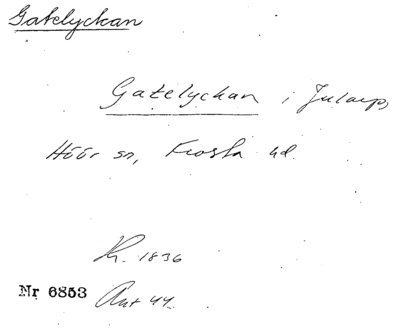 Gatelyckan
Gatelyckan i Jularp,
Höör sn, Frosta hd.
Kr. 1836
Nr 6853 Ant 44.